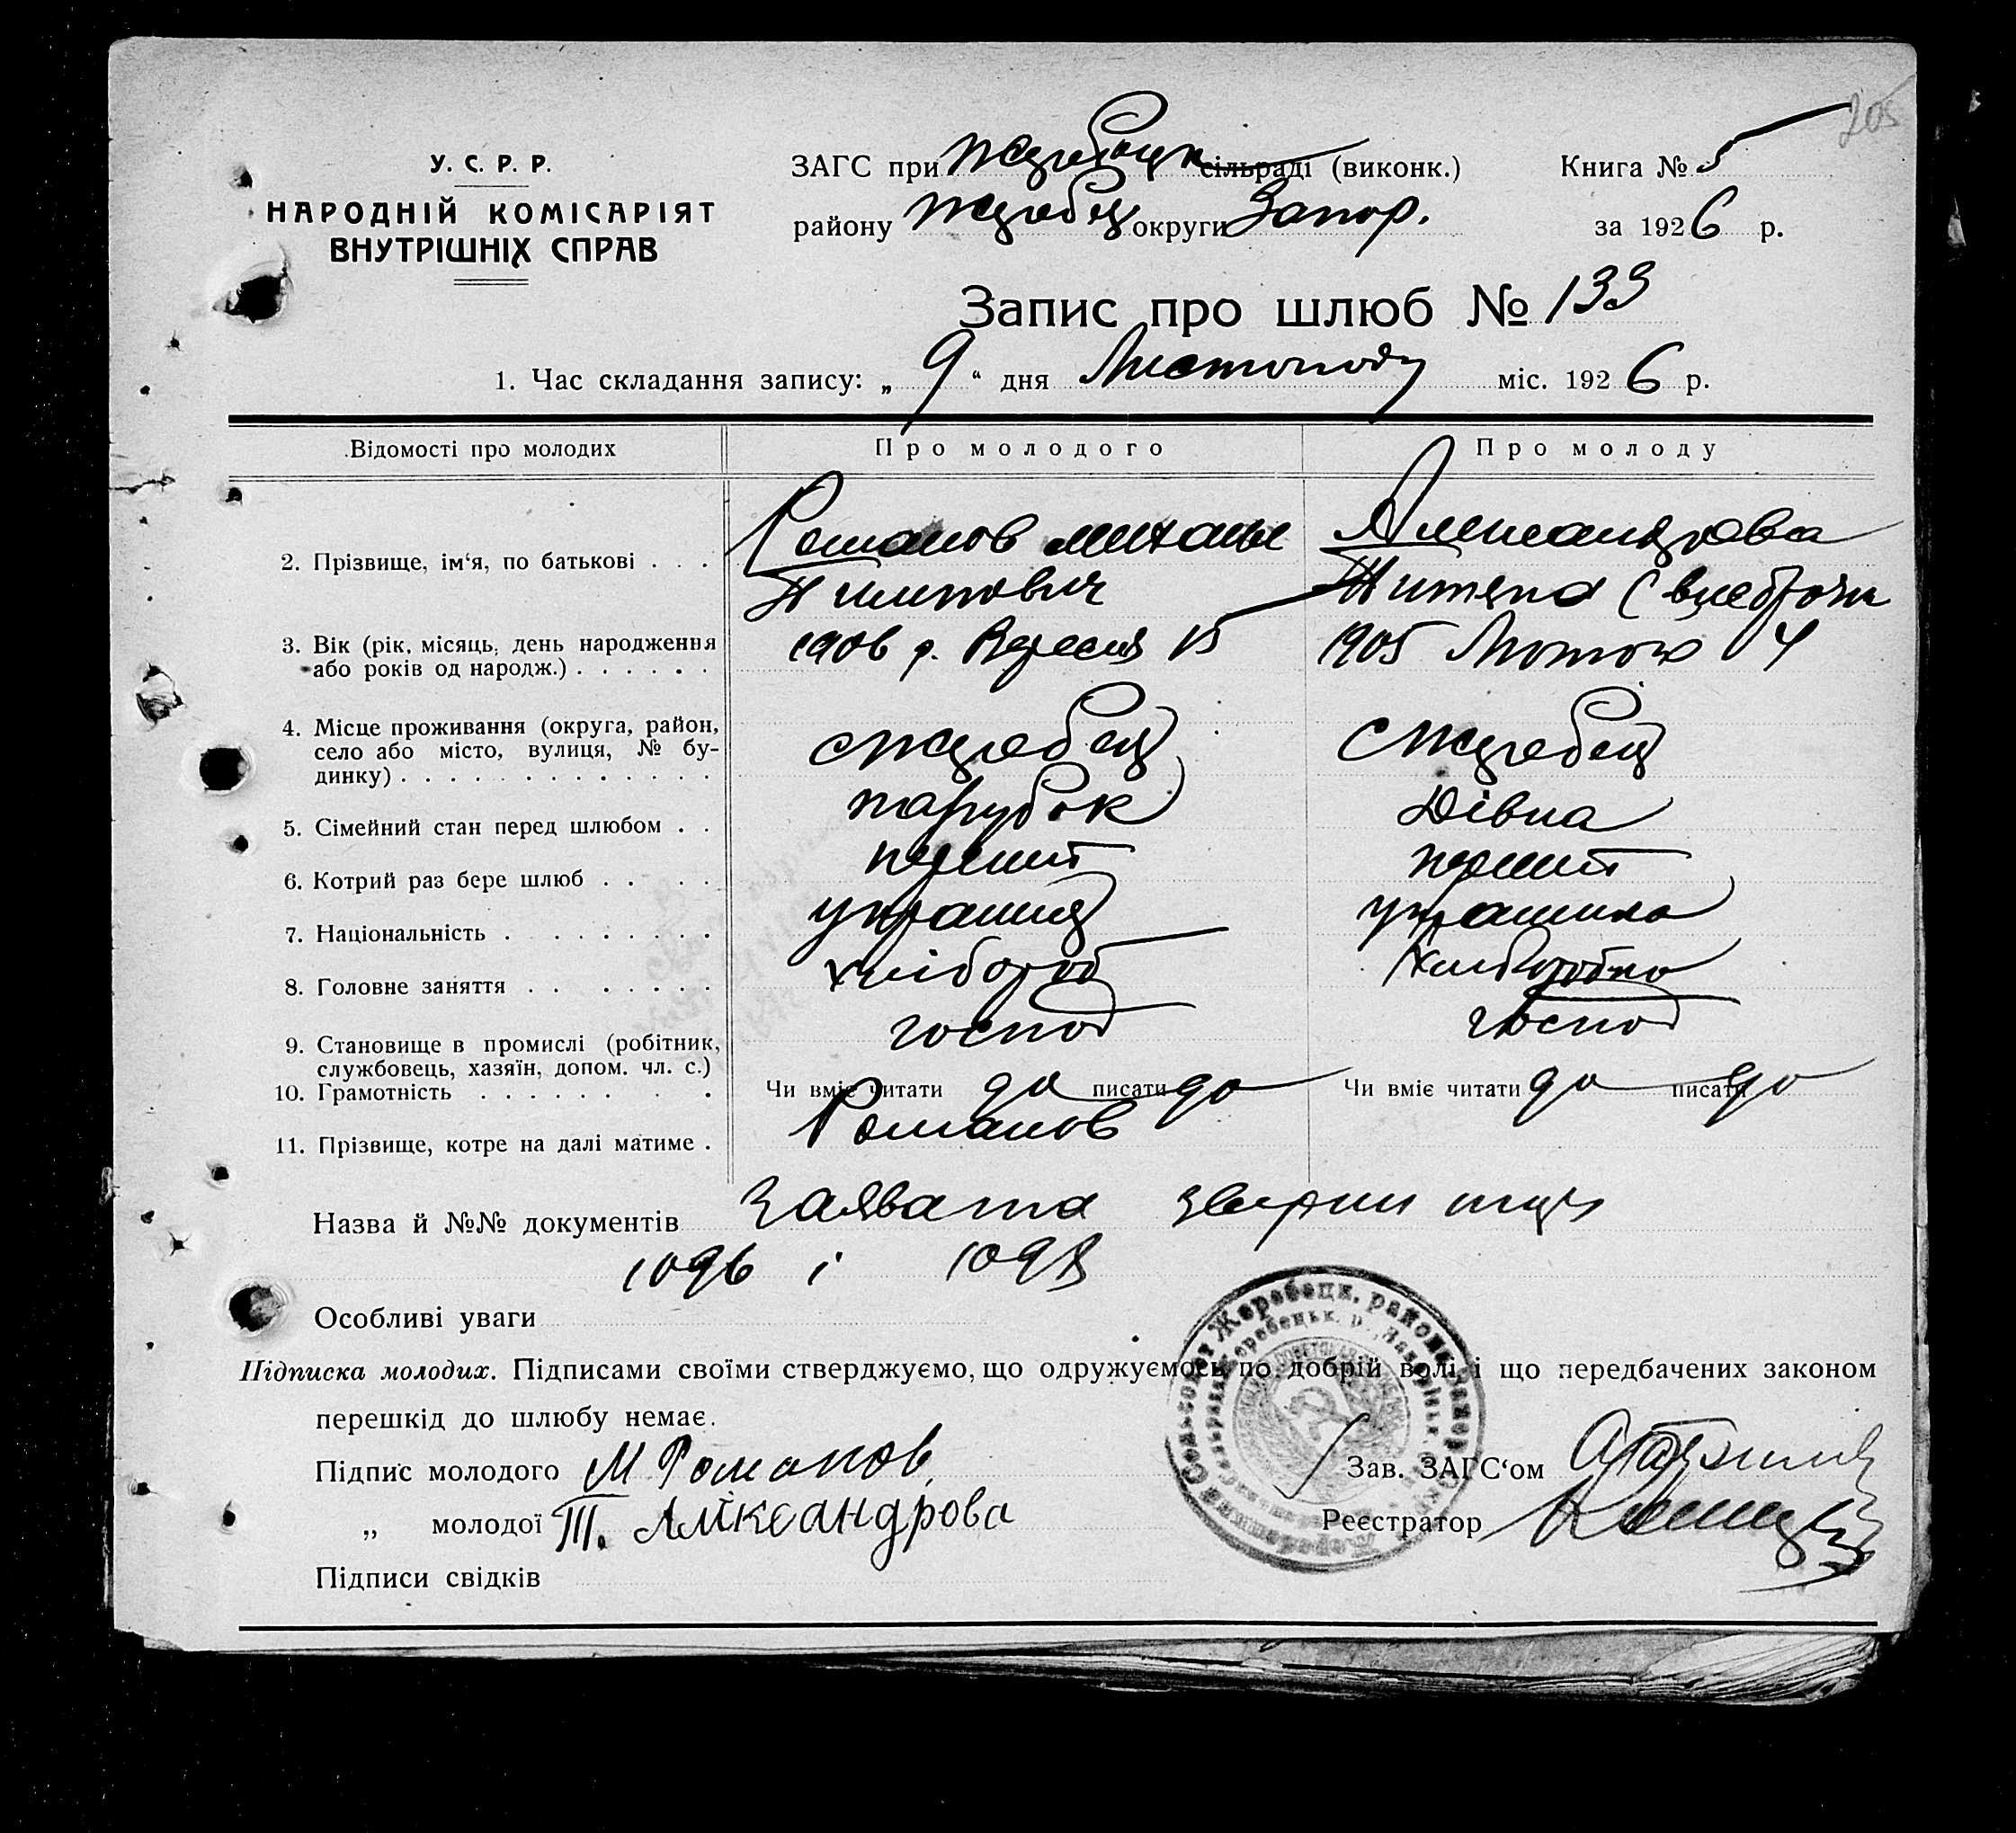 205
У. С. Р. Р.
НАРОДНІЙ КОМІСАРІЯТ
ВНУТРІШНІХ СПРАВ
ЗАГС при Жеребецк сільраді (виконк.) Книга № 5
району Жеребец округи Запор. за 1926 р.
Запис про шлюб № 133
1. Час складання запису: „ 9 “ дня Листопаду міс. 1926 р.
Відомості про молодих Про молодого Про молоду
2. Прізвище, ім‘я, по батькові . . . Романов Александрова
3. Вік (рік, місяць, день народження 1906 р. Вересня 15 1905 Лютого 4
або років од народж.) . . . . . .
4. Місце проживання (округа, район, с Жеребец с Жеребец
село або місто, вулиця, № бу-
динку) . . . . . . . . . . . . .
5. Сімейний стан перед шлюбом . . парубок Дівка
6. Котрий раз бере шлюб . . . . перший перший
7. Національність . . . . . . . . . українец українка
8. Головне заняття . . . . . . . . хлібороб хлиборобка
9. Становище в промислі (робітник, господ господ
службовець, хазяїн, допом. чл. с.)
10. Грамотність . . . . . . . . . Чи вміє читати да писати да Чи вміє читати да писати да
11. Прізвище, котре на далі матиме . Романов
Назва й №№ документів Заява та
1096 і
Особливі уваги
Підписка молодих. Підписами своїми стверджуємо, що одружуємось по добрій волі, і що передбачених законом
перешкід до шлюбу немає.
Підпис молодого М Романов
Зав. ЗАГС‘ом
„ молодої Т. Аликсандрова
Реєстратор
Підписи свідків